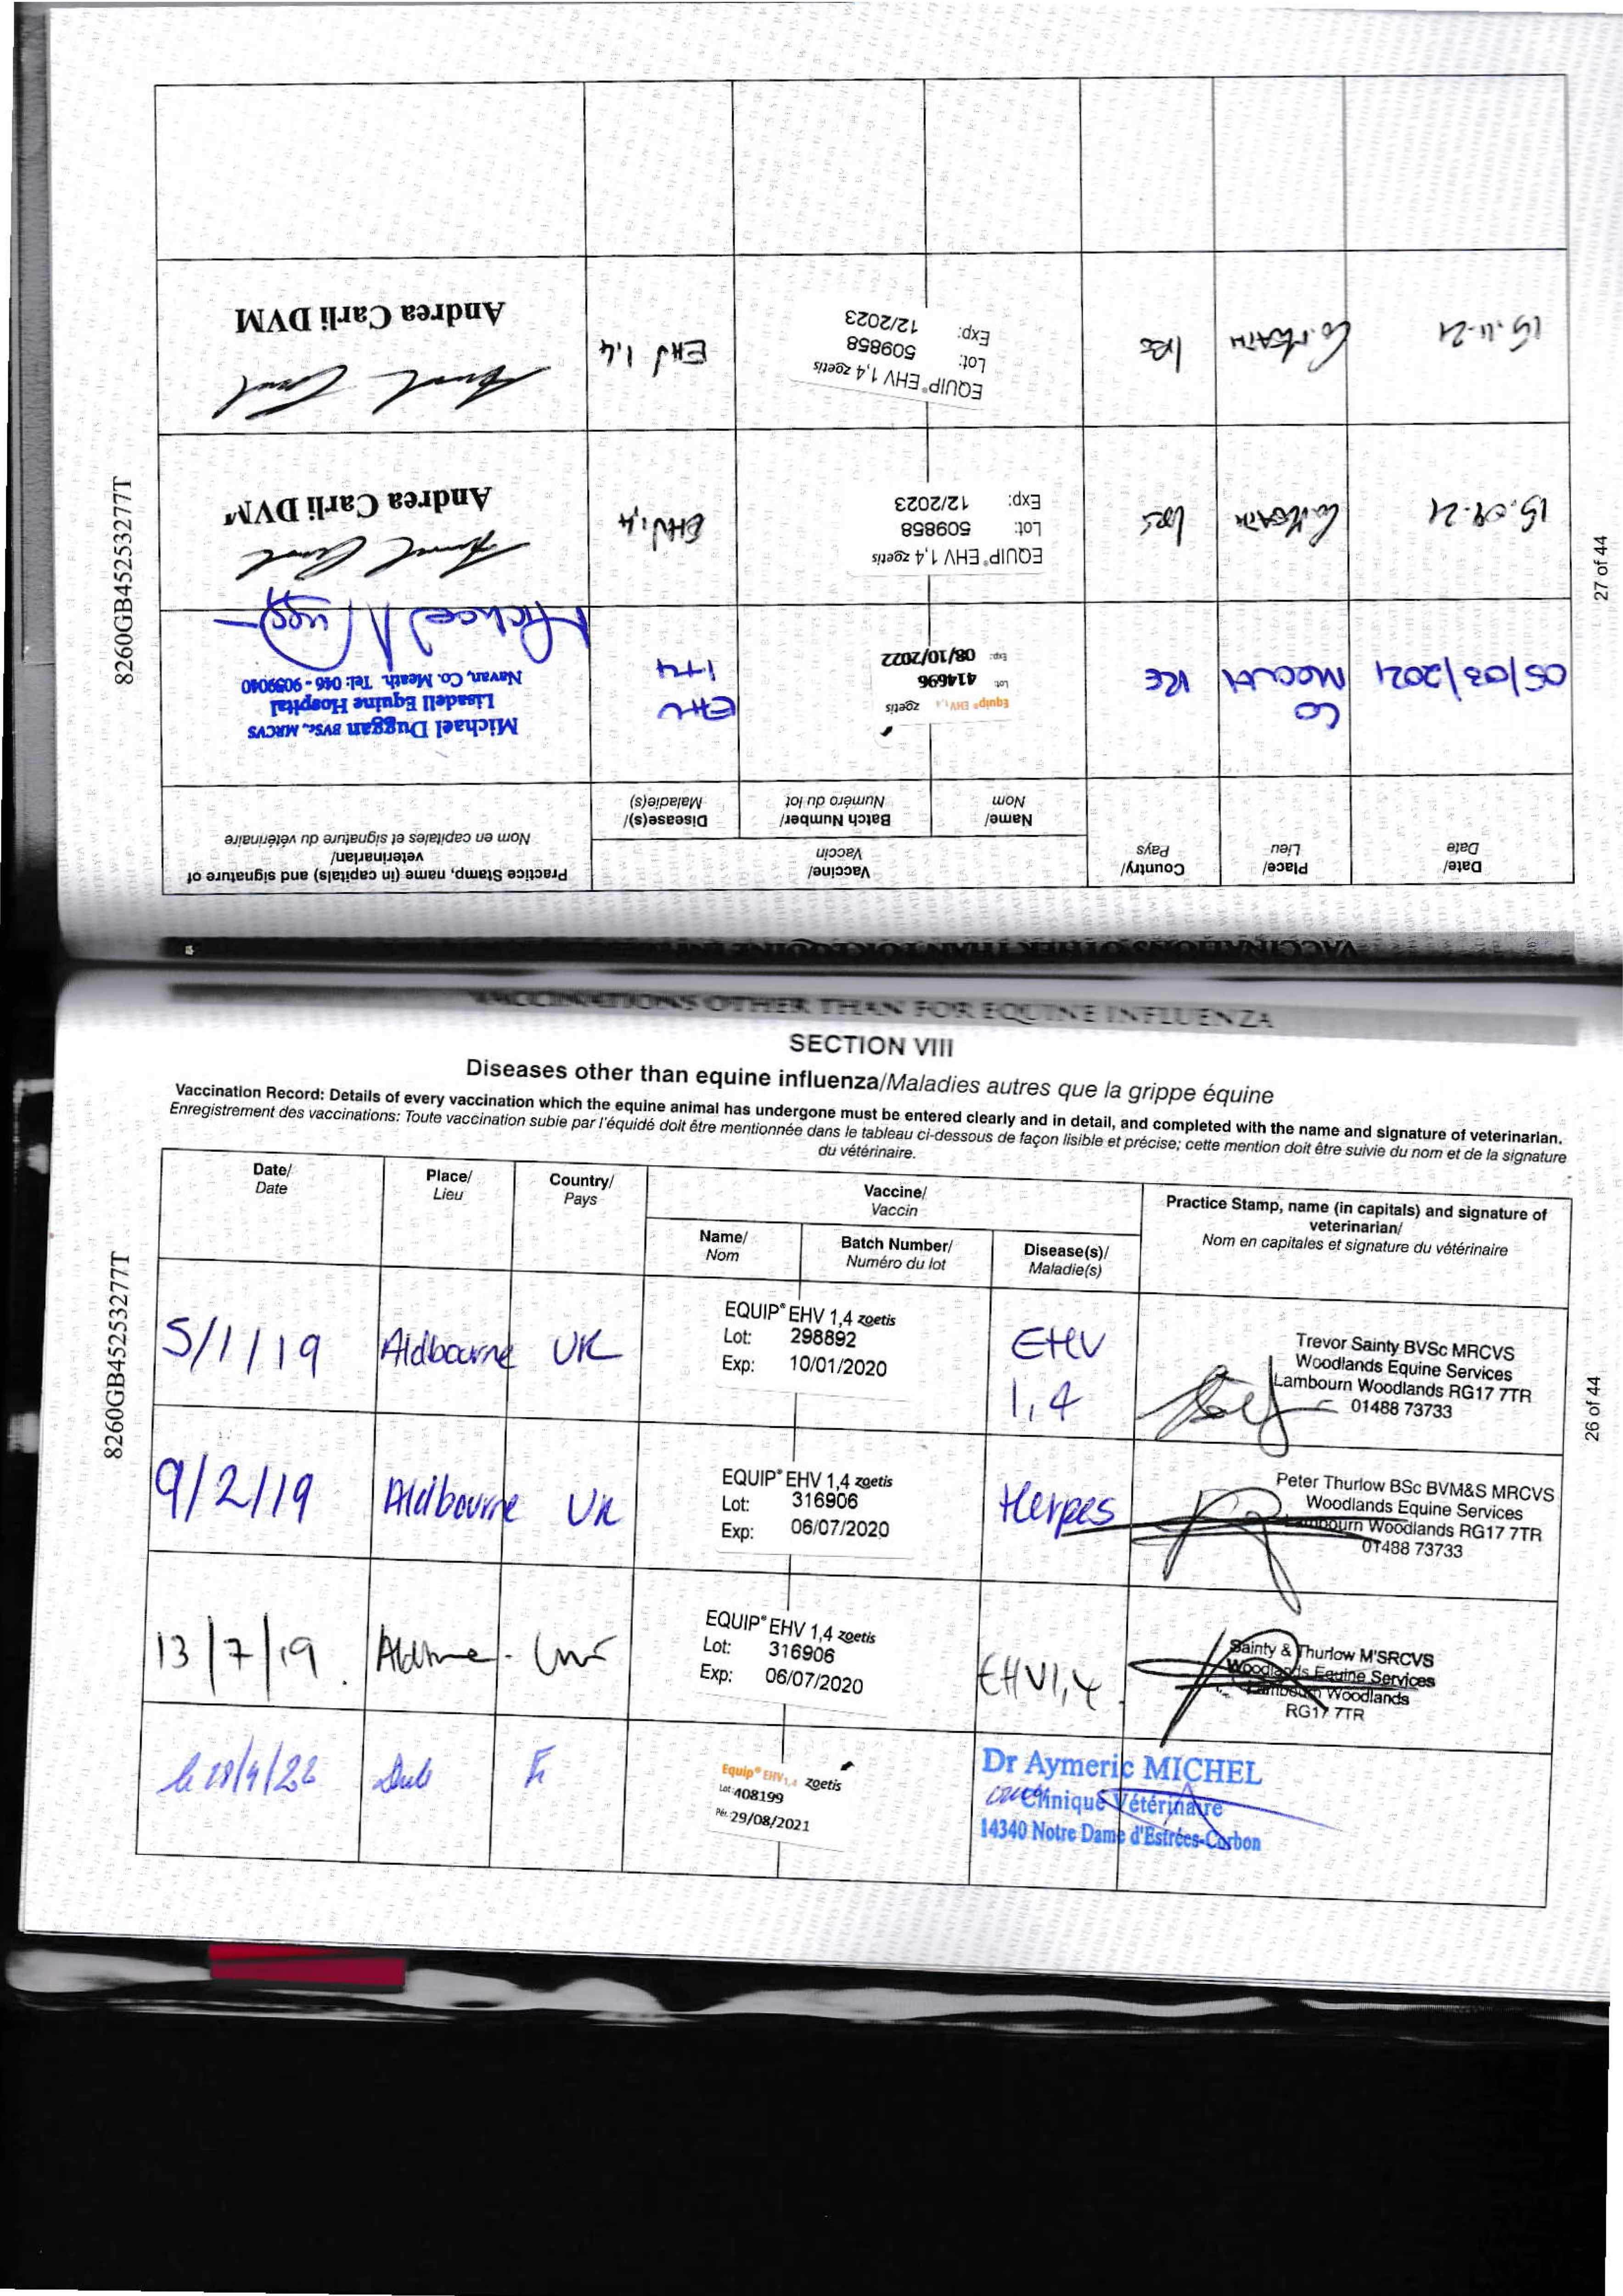 VACCINATIONS OTHER THAN FOR EQUINE INFLUENZA
SECTION VIII
Diseases other than equine influenza/Maladies autres que la grippe équine
Vaccination Record: Details of every vaccination which the equine animal has undergone must be entered clearly and in detail, and completed with the name and signature of veterinarian.
Enregistrement des vaccinations: Toute vaccination subie par l'équidé doit être mentionnée dans le tableau ci-dessous de façon lisible et précise; cette mention doit être suivie du nom et de la signature
du vétérinaire.
Date/
Date
Place/
Lieu
Country/
Pays
Vaccine/
Vaccin
Name/
Nom
Batch Number/
Numéro du lot
Disease(s)/
Maladie(s)
Practice Stamp, name (in capitals) and signature of
veterinarian/
Nom en capitales et signature du vétérinaire
5/1/19
Aldbourne
UK
EQUIP® EHV 1,4 zoetis
Lot: 298892
Exp: 10/01/2020
EHV
1,4
Trevor Sainty BVSc MRCVS
Woodlands Equine Services
Lambourn Woodlands RG17 7TR
01488 73733
9/2/19
Aldbourne
UK
EQUIP® EHV 1,4 zoetis
Lot: 316906
Exp: 06/07/2020
Herpes
Peter Thurlow BSc BVM&S MRCVS
Woodlands Equine Services
Lambourn Woodlands RG17 7TR
01488 73733
13/7/19
EQUIP® EHV 1,4 zoetis
Lot: 316906
Exp: 06/07/2020
EHV1,4
Sainty & Thurlow M'SRCVS
Woodlands Equine Services
Lambourn Woodlands
RG17 7TR
Equip® EHV1,4 zoetis
Lot: 408199
Pér. 29/08/2021
Dr Aymeric MICHEL
Clinique Vétérinaire
14340 Notre Dame d'Estrées-Corbon
8260GB45253277T
26 of 44
VACCINATIONS OTHER THAN FOR EQUINE
Date/
Date
Place/
Lieu
Country/
Pays
Vaccine/
Vaccin
Name/
Nom
Batch Number/
Numéro du lot
Disease(s)/
Maladie(s)
Practice Stamp, name (in capitals) and signature of
veterinarian/
Nom en capitales et signature du vétérinaire
05/03/2021
CO
IRE
Equip® EHV1,4 zoetis
Lot: 414696
Exp: 08/10/2022
EHV
1+4
Michael Duggan BVSc, MRCVS
Lissadell Equine Hospital
Navan, Co. Meath. Tel: 046 - 9059040
15.09.21
Co. MEATH
EQUIP® EHV 1,4 zoetis
Lot: 509858
Exp: 12/2023
EHV1,4
Andrea Carli DVM
15.11.21
Co. MEATH
EQUIP® EHV 1,4 zoetis
Lot: 509858
Exp: 12/2023
EHV 1,4
Andrea Carli DVM
8260GB45253277T
27 of 44